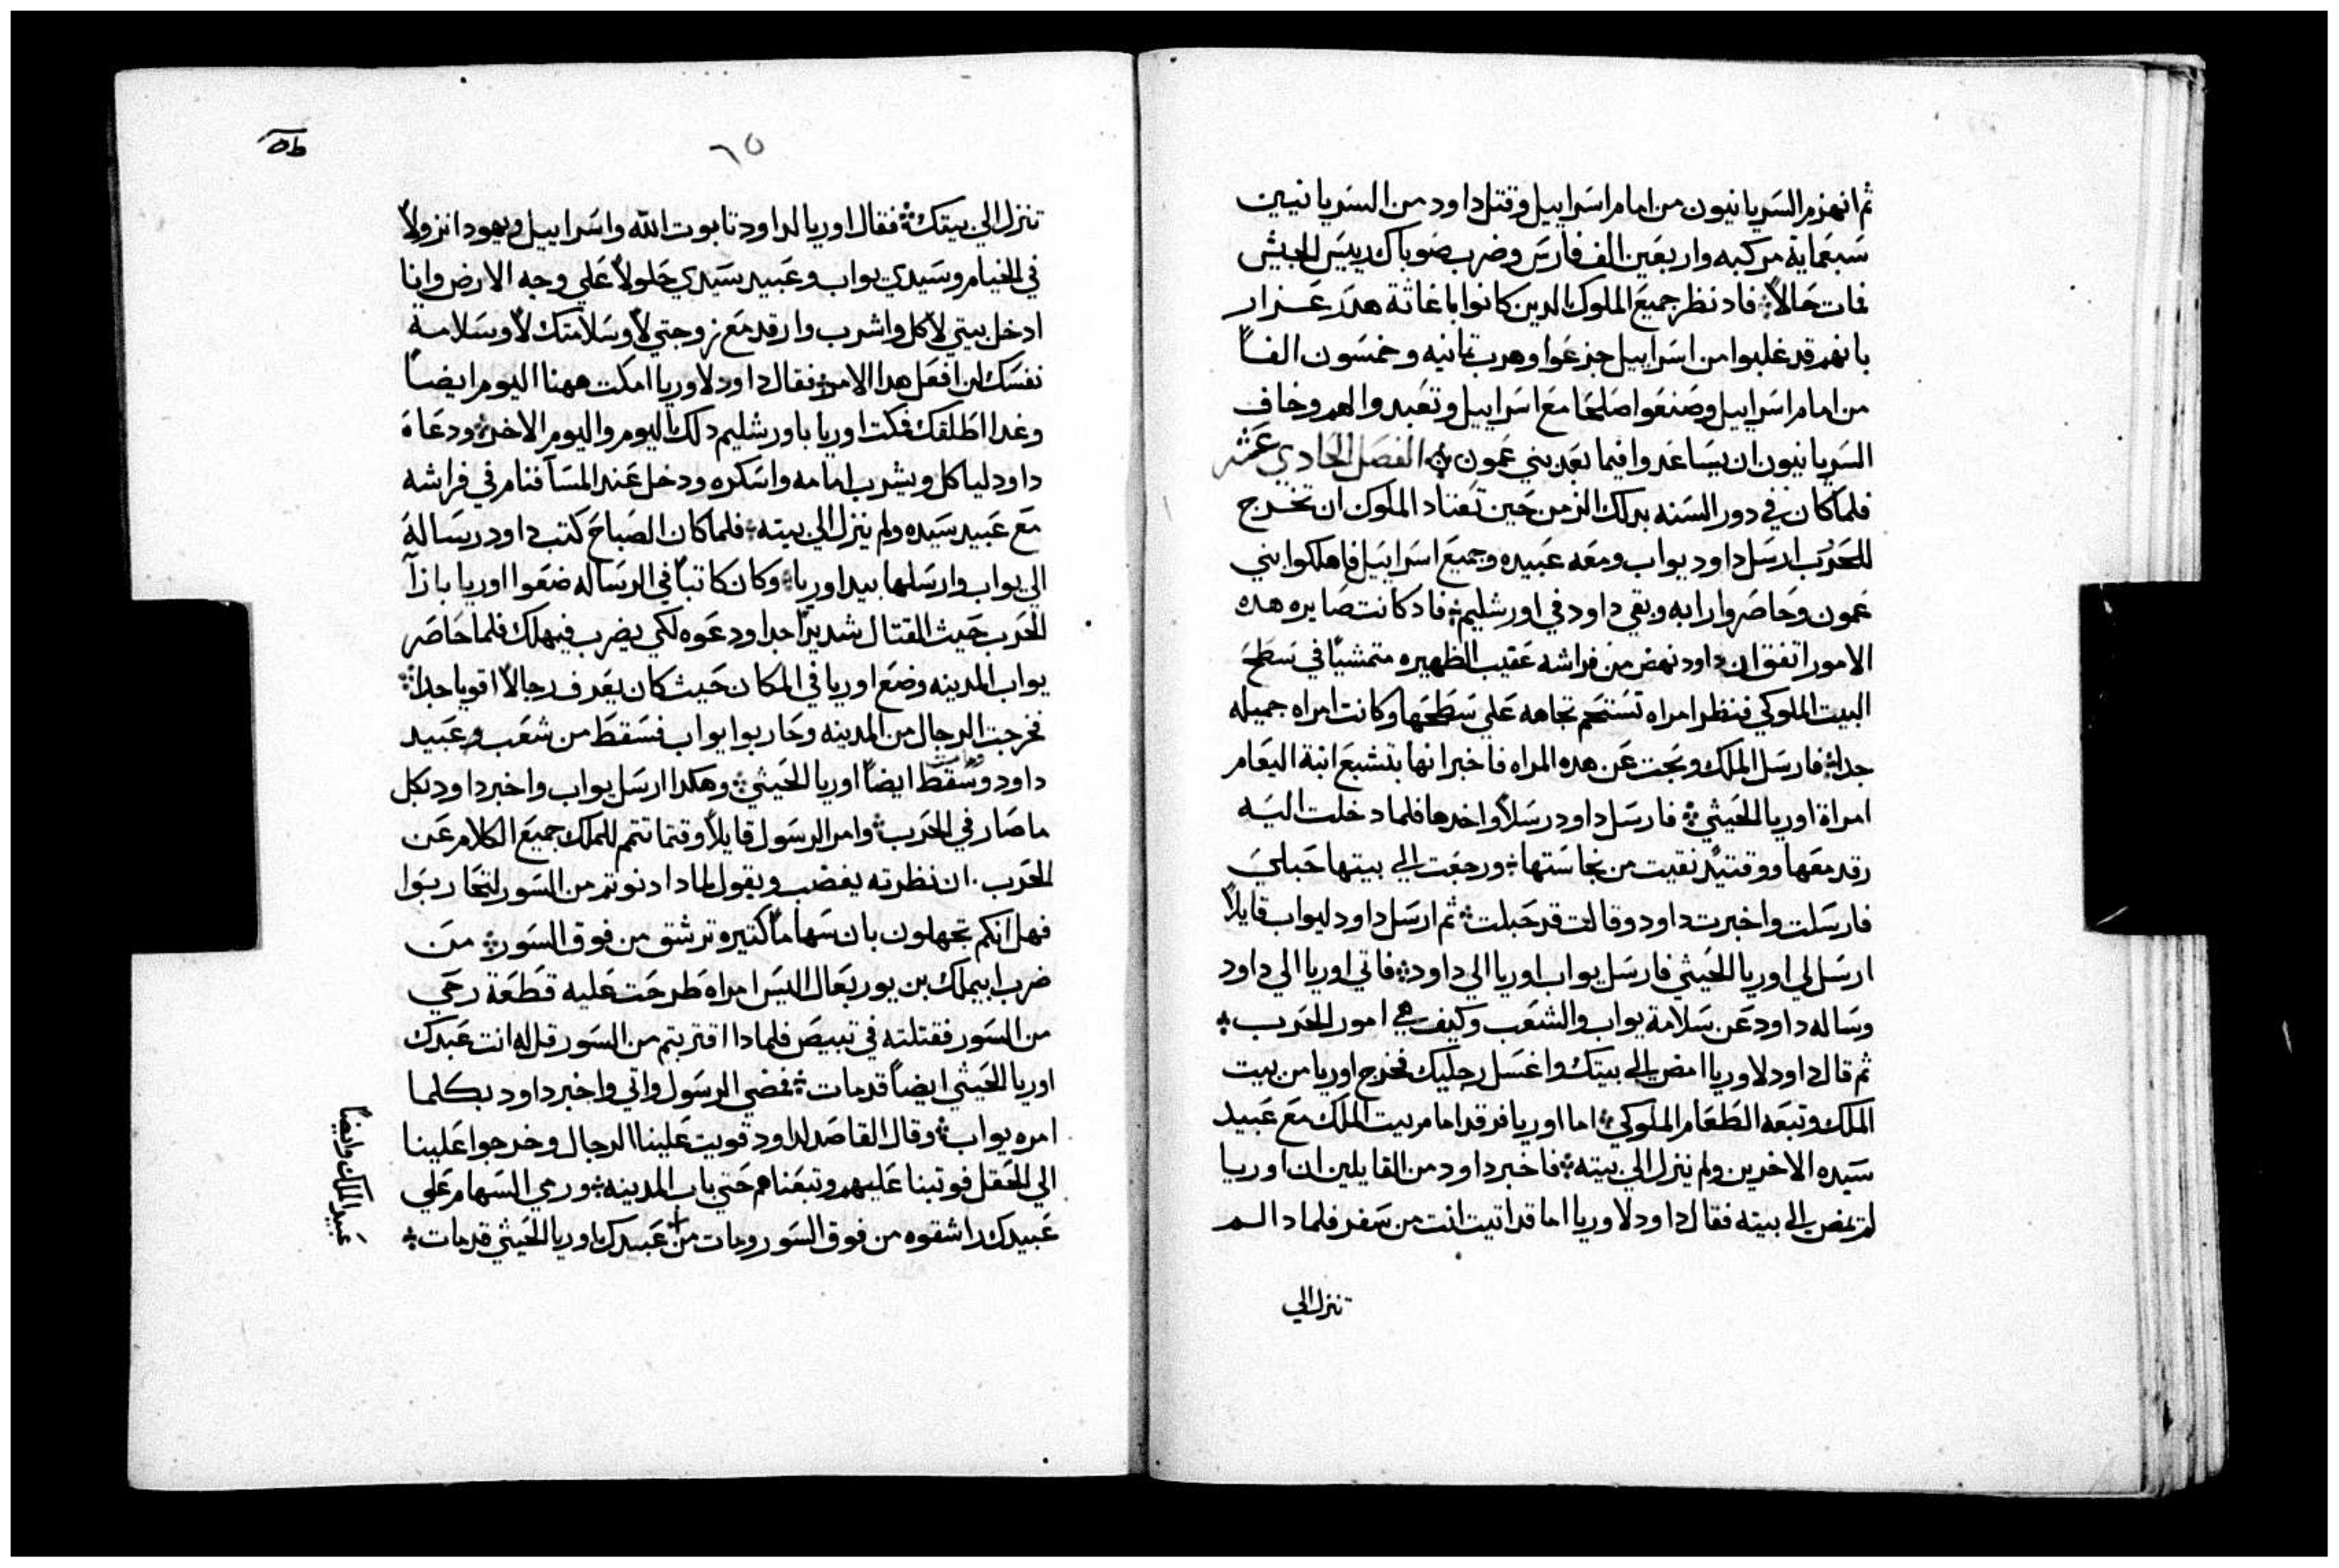 ثم انهزم السريانيون من امام اسراييل وقتل داود من السريانيين
سبعماية مركبه واربعين الف فارس وضرب ضوباك رييس الجيش
فمات حالاً فاد نظر جميع الملوك الدين كانوا باغاثة هدرعزار
بانهم قد غلبوا من اسراييل جزعوا وهرب تمانيه وخمسون الفاً
من امام اسراييل وصنعوا صلحا مع اسراييل وتعبدوا لهم وخاف
السريانيون ان يساعدوا فيما بعد بني عمون الفصل الحادي عشر
فلما كان في دور السنه بدلك الزمن حين تعتاد الملوك ان تخرج
للحرب ارسل داود يواب ومعه عبيده وجميع اسراييل فاهلكوا بني
عمون وحاصروا رابه وبقي داود في اورشليم فاد كانت صايره هده
الامور اتفق ان داود نهض من فراشه عقيب الظهيره متمشياً في سطح
البيت الملوكي فنظر امراه تستحم تجاهه علي سطحها وكانت امراه جميله
جدا فارسل الملك وبحت عن هده المراه فاخبر انها بتشبع ابنة اليعام
امراة اوريا الحيثي فارسل داود رسلاً واخدها فلما دخلت اليه
رقد معها ووقتيد نقيت من نجاستها ورجعت الي بيتها حبلي
فارسلت واخبرت داود وقالت قد حبلت ثم ارسل داود ليواب قايلاً
ارسل لي اوريا الحيثي فارسل يواب اوريا الي داود فاتي اوريا الي داود
وساله داود عن سلامة يواب والشعب وكيف هي امور الحرب
ثم قال داود لاوريا امض الي بيتك واغسل رجليك فخرج اوريا من بيت
الملك وتبعه الطعام الملوكي اما اوريا فرقد امام بيت الملك مع عبيد
سيده الاخرين ولم ينزل الي بيته فاخبر داود من القايلين ان اوريا
لم يمض الي بيته فقال داود لاوريا اما قد اتيت انت من سفر فلمادا لم
تنزل الي
٦٥
تنزل الي بيتك فقال اوريا لداود تابوت الله واسراييل ويهودا نزولاً
في الخيام وسيدي يواب وعبيد سيدي حلولاً علي وجه الارض وانا
ادخل بيتي لاكل واشرب وارقد مع زوجتي لا وسلامتك لا وسلامة
نفسك لن افعل هدا الامر فقال داود لاوريا امكت ههنا اليوم ايضاً
وغدا اطلقك فمكت اوريا باورشليم دلك اليوم واليوم الاخر ودعاه
داود لياكل ويشرب امامه واسكره ودخل عند المسآ فنام في فراشه
مع عبيد سيده ولم ينزل الي بيته فلما كان الصباح كتب داود رسالة
الي يواب وارسلها بيد اوريا وكان كاتباً في الرساله ضعوا اوريا بازآ
الحرب حيث القتال شديداً جدا ودعوه لكي يضرب فيهلك فلما حاصر
يواب المدينه وضع اوريا في المكان حيث كان يعرف رجالاً اقويا جدا
فخرجت الرجال من المدينه وحاربوا يواب فسقط من شعب وعبيد
داود وسقط ايضاً اوريا الحيثي وهكدا ارسل يواب واخبر داود بكل
ما صار في الحرب وامر الرسول قايلاً وقتما تتمم للملك جميع الكلام عن
الحرب ان نظرته يغضب ويقول لمادا دنوتم من السور لتحاربوا
فهل انكم تجهلون بان سهاماً كتيره ترشق من فوق السور من
ضرب ابيملك بن يوربعال اليس امراه طرحت عليه قطعة رحي
من السور فقتلته في تبيص فلمادا اقتربتم من السور قل له انت عبدك
اوريا الحيثي ايضاً قد مات فمضي الرسول واتي واخبر داود بكلما
امره يواب وقال القاصد لداود قويت علينا الرجال وخرجوا علينا
الي الحقل فوتبنا عليهم وتبعناهم حتي باب المدينه ورمي السهام علي
عبيدك الراشقوه من فوق السور ومات من عبيدك اوريا الحيثي قد مات
عبيد الملك وايضاً